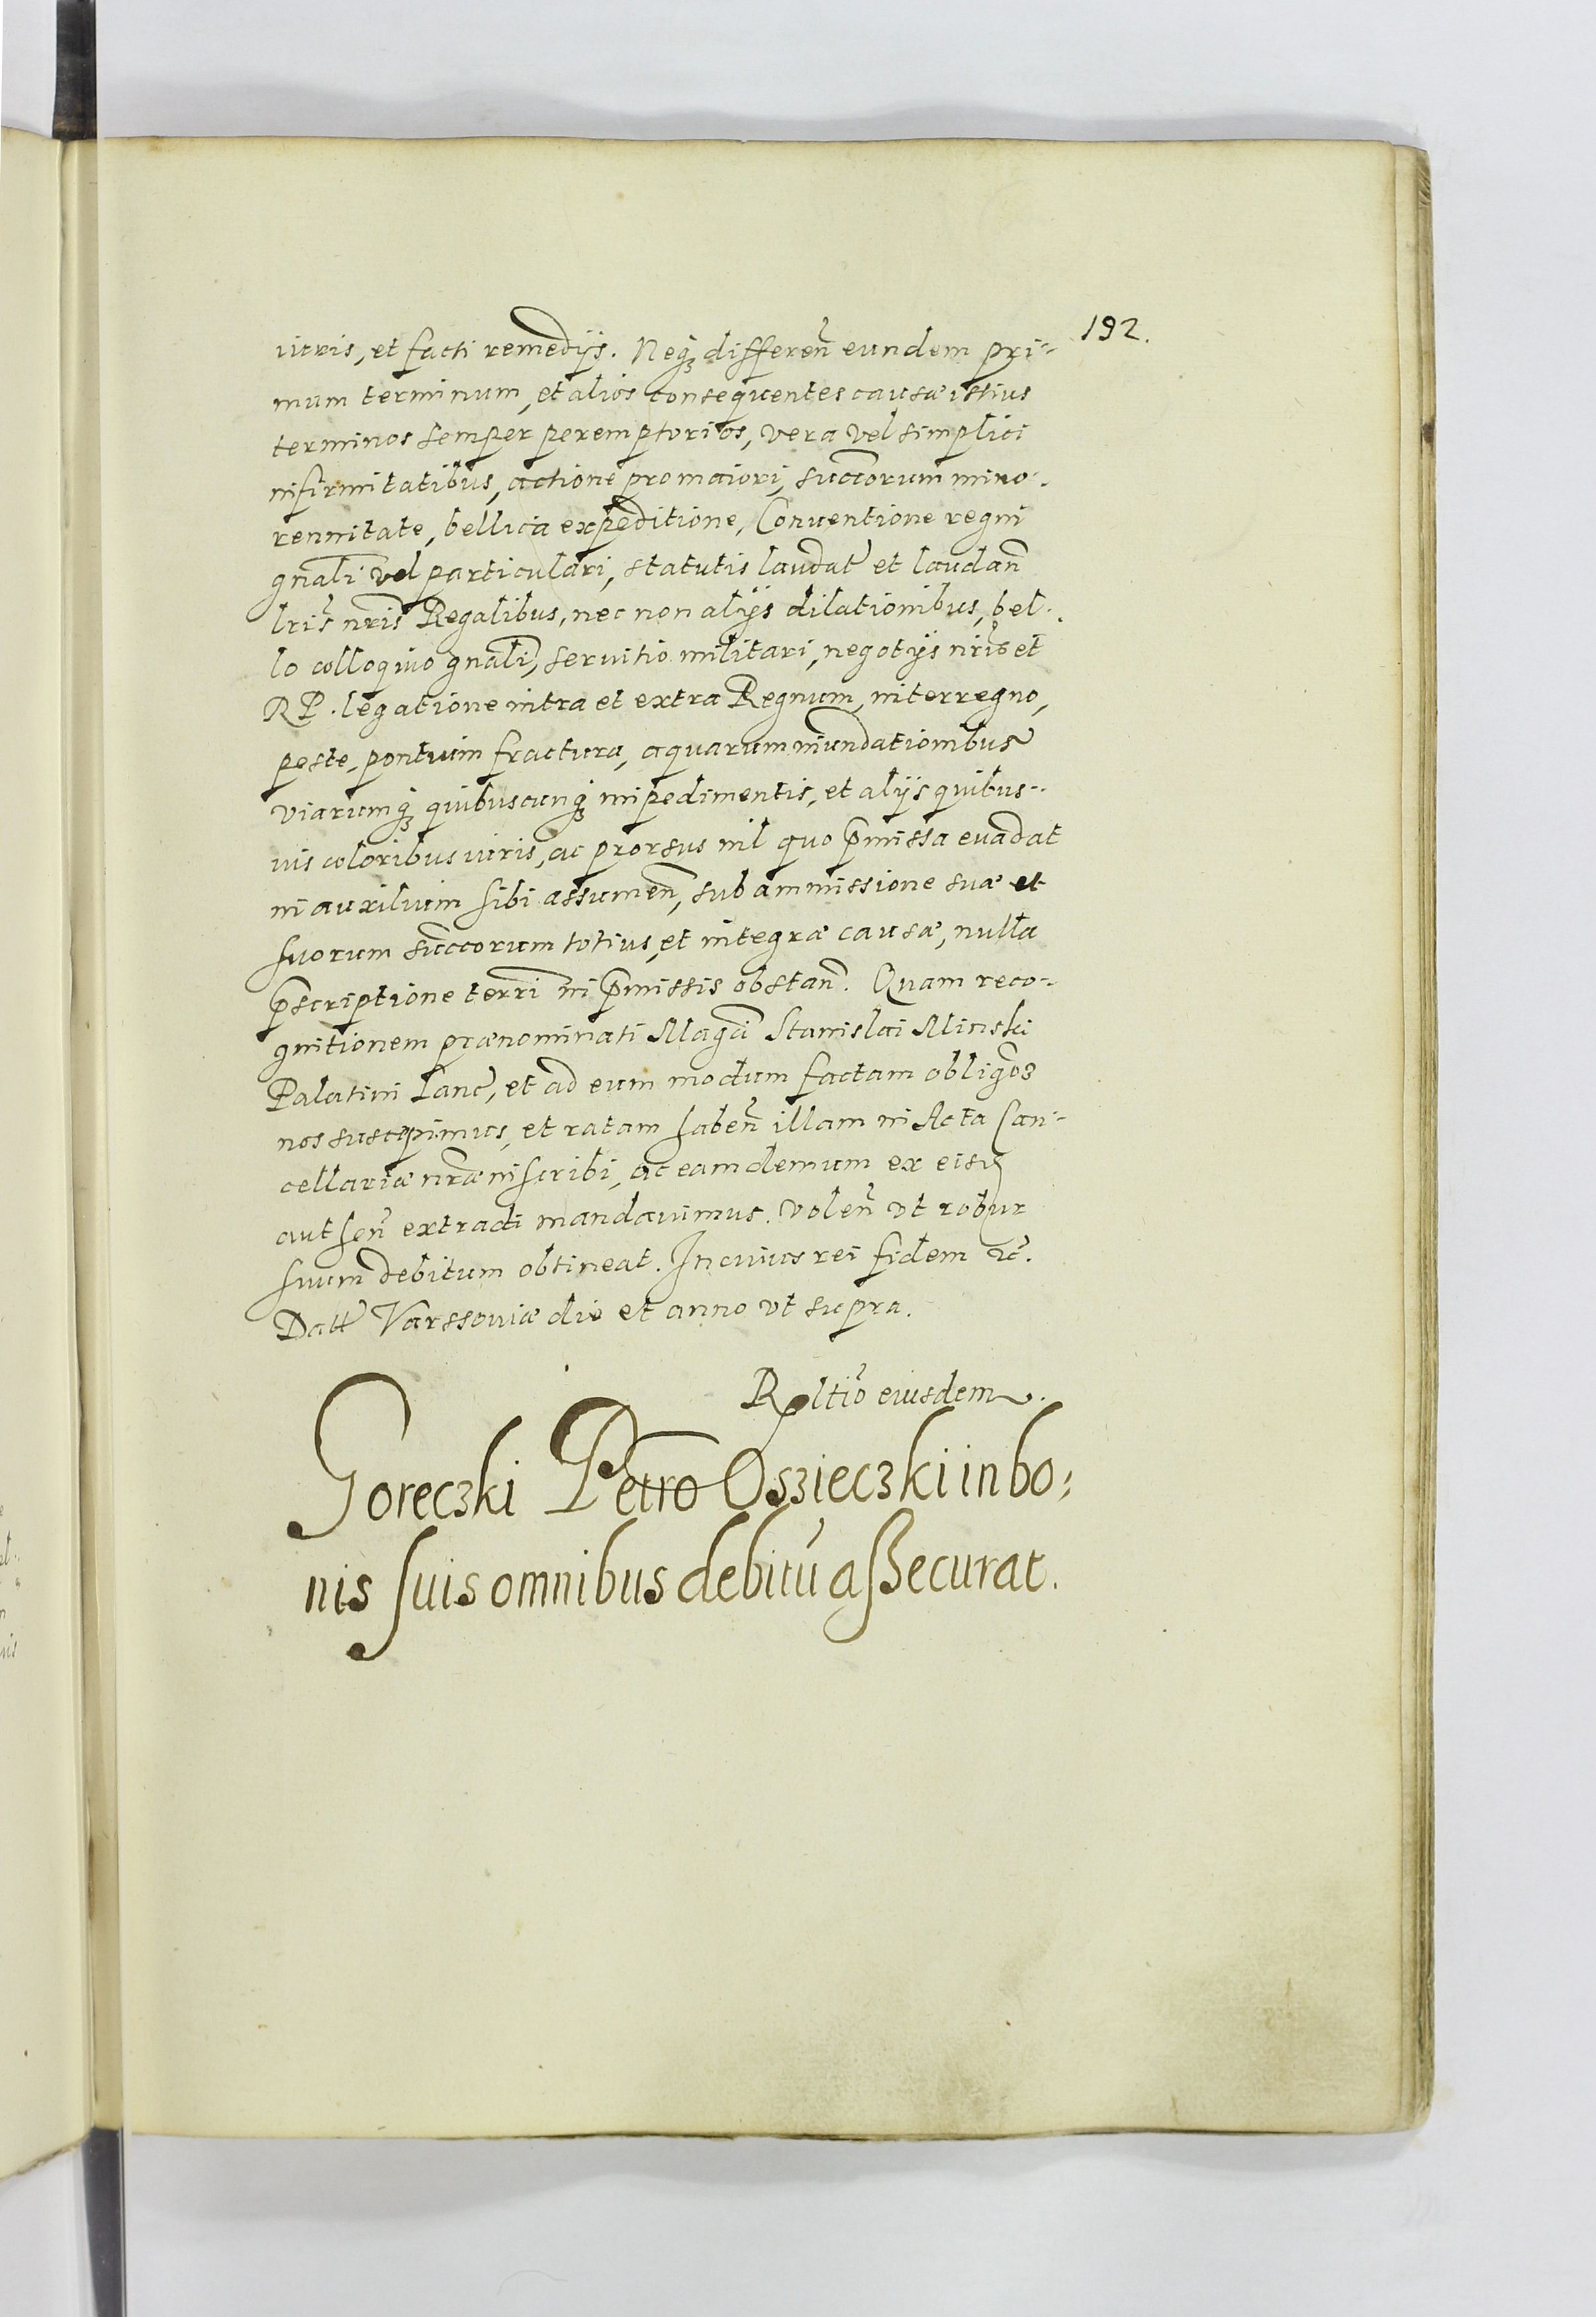 192.
iuris, et facti remedijs. Neq3 differen̄ eundem pri-
mum terminum, et alios consequentes causæ istius
terminos semper peremptorios, vera vel simplici
infirmitatibus, actione pro maiori, succorum mino-
rennitate, bellica expeditione, Conuentione regni
gnāli vel particulari, statutis laudat̄ et laudan̄
lrīs nrīs Regalibus, nec non alijs dilationibus, bel-
lo colloquio gnāli, seruitio militari, negotijs nrīs et
RP. legatione intra et extra Regnum, interregno,
peste, pontium fractura, aquarum inundationibus
viarumq3 quibuscunq3 impedimentis, et alijs quibus-
uis coloribus iuris, ac prorsus nil quo p̄missa euadat
in auxilium sibi assumen̄, sub ammissione suæ et
suorum succorum totius, et integræ causæ, nulla
p̄scriptione terrī in p̄missis obstan̄. Quam reco-
gnitionem prænominati Magci Stanislai Minski
Palatini Lanc̄, et ad eum modum factam obligōs
nos suscepimus, et ratam haben̄ illam in Acta Can-
cellariæ nræ inscribi, ac eam demum ex eisd
authen̄ extradi mandauimus. Volen̄ vt robur
suum debitum obtineat. In cuius rei fidem etc̄.
Datt̄ Varssouiæ die et anno vt supra.
Rpltīo eiusdem.
Goreczki Petro Oszieczki in bo-
nis suis omnibus debitū assecurat.